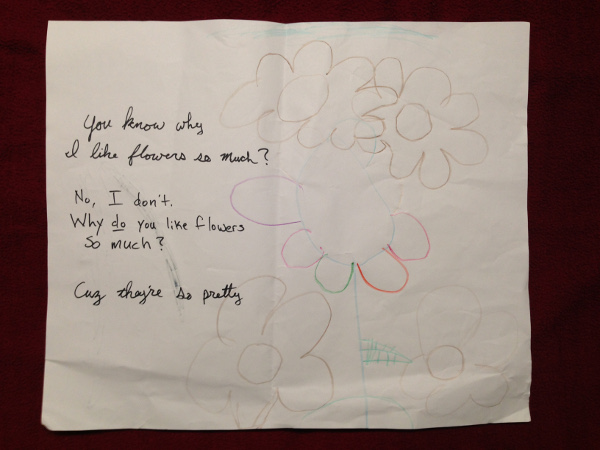 You know why
I like flowers so much?
No, I don't.
Why do you like flowers
so much?
Cuz they're so pretty